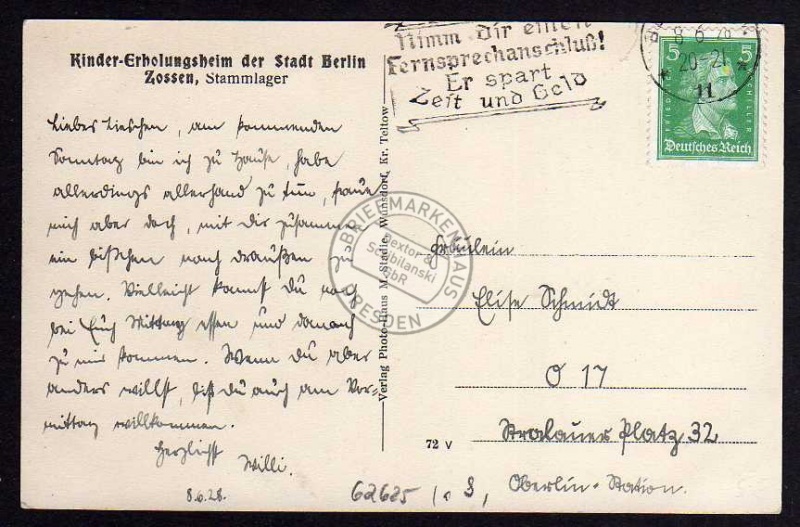 Kinder-Erholungsheim der Stadt Berlin
Zossen, Stammlager
Liebes Lieschen, am kommenden
Sonntag bin ich zu Hause, habe
allerdings allerhand zu tun, freue
mich aber doch, mit dir zusammen
ein bißchen nach draußen zu
gehen. Vielleicht kannst Du nach
bei Euch Mittag essen und danach
zu mir kommen. Wenn du aber
anders willst, bist Du auch am Vor-
mittag willkommen.
Herzlichst
Willi.
8.6.28.
Verlag Photo-Haus M. Stadie, Wünsdorf, Kr. Teltow
Nimm dir einen
Fernsprechanschluß!
Er spart
Zeit und Geld
8 6 28
20-21
* 11 *
5 5
FRIEDRICH SCHILLER
Deutsches Reich
BRIEFMARKENHAUS
Rextor &
Schibilanski
GbR
DRESDEN
Fräulein
Elise Schmidt
O 17
Stralauer Platz 32
Oberlin-Station.
72 v
62625